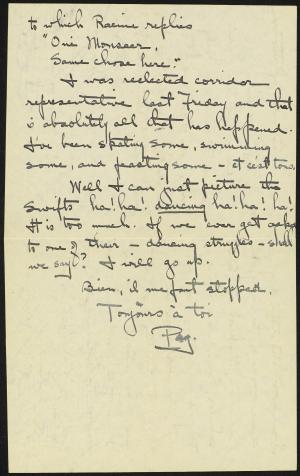 to which Racine replies
"Oui Monsaer,
Same chose here."
I was reelected corridor
representative last Friday and that
is absolutely all that has happened.
I've been skating some, swimming
some, and feasting some — et c'est tous.
Well I can just picture the
Swifts ha! ha! dancing ha! ha! ha!
It is too much. If we ever get asked
to one of their — dancing struggles — shall
we say? I will go up.
Bien, il me faut stopped.
Toujours à toi
Peg.